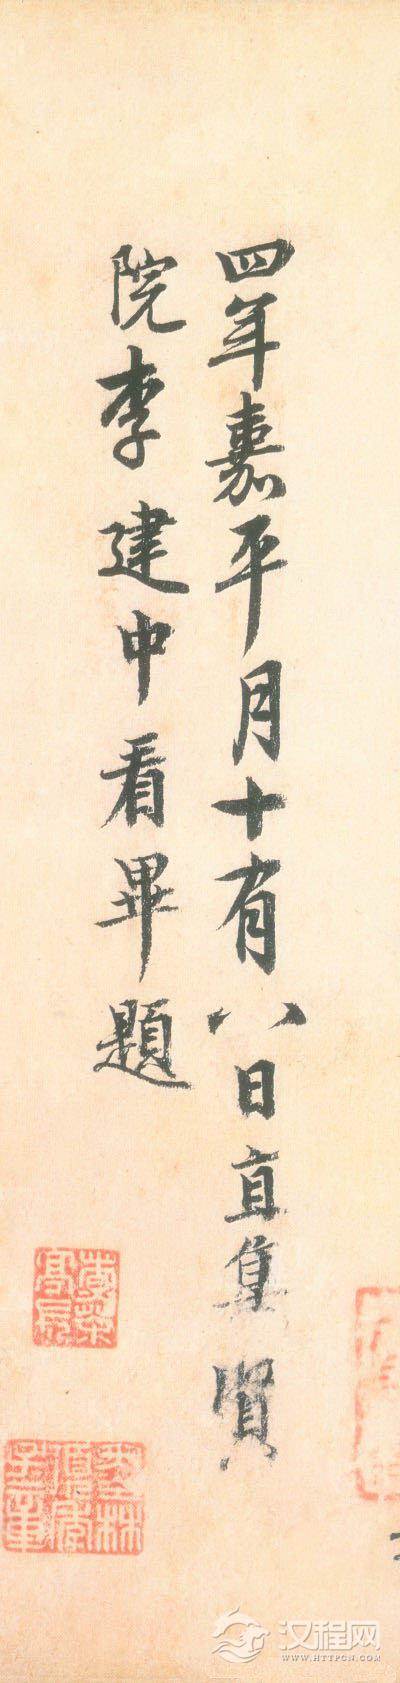 四年嘉平月十有八日直集賢
院李建中看畢題
汉程网
WWW.HTTPCN.COM